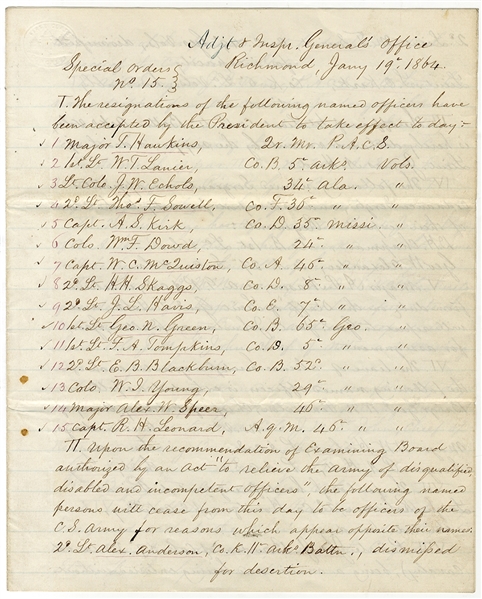 Adjt & Inspr. General's Office
Richmond, Jany 19" 1864.
Special Orders
No 15.
I. The resignations of the following named officers have
been accepted by the President to take effect to day-
1 Major T. Hawkins, Qr. Mr. P.A.C.S.
2 1st. Lt. W. T. Lanier, Co. B. 5" Arks. Vols.
3 Lt. Colo. J. W. Echols, 34" Ala. "
4 2d. Lt. Thos. F. Sowell, Co. F. 36" " "
5 Capt. A. S. Kirk, Co. D. 35" Missi. "
6 Colo. Wm. F. Dowd, 24" " "
7 Capt. W. C. McQuiston, Co. A. 45" " "
8 2d. Lt. H. H. Skaggs, Co. D. 8" " "
9 2d. Lt. J. L. Havis, Co. E. 7" " "
10 1st. Lt. Geo. N. Green, Co. B. 65" Geo. "
11 1st. Lt. F. A. Tompkins, Co. D. 5" " "
12 2d. Lt. E. B. Blackburn, Co. B. 52d. " "
13 Colo. W. J. Young, 29" " "
14 Major Alex. W. Speer, 46" " "
15 Capt. R. H. Leonard, A. Q. M. 46" " "
II. Upon the recommendation of Examining Board
authorized by an Act "to relieve the Army of disqualified,
disabled and incompetent officers", the following named
persons will cease from this day to be officers of the
C. S. Army for reasons which appear opposite their names.
2d. Lt. Alex. Anderson, Co. K. 11" Arks. Battn., dismissed
for desertion.